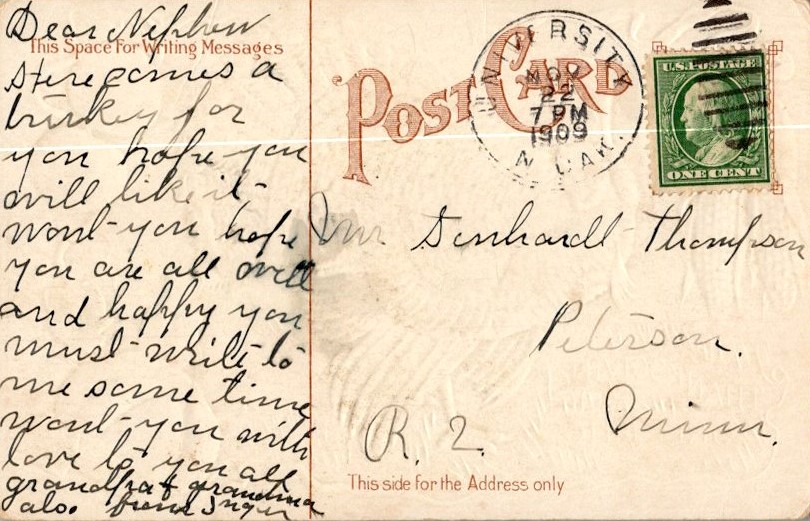 Dear Nephew
This Space For Writing Messages
Here comes a
turkey for
you hope you
will like it
wont you hope
you are all well
and happy you
must write to
me some time
wont you with
love to you all
grandpa & grandma
also. from Inger
POST CARD
UNIVERSITY
NOV
22
7 PM
1909
N. DAK.
U.S. POSTAGE
ONE CENT
Mr Thompson
Peterson.
Minn.
R. 2.
This side for the Address only